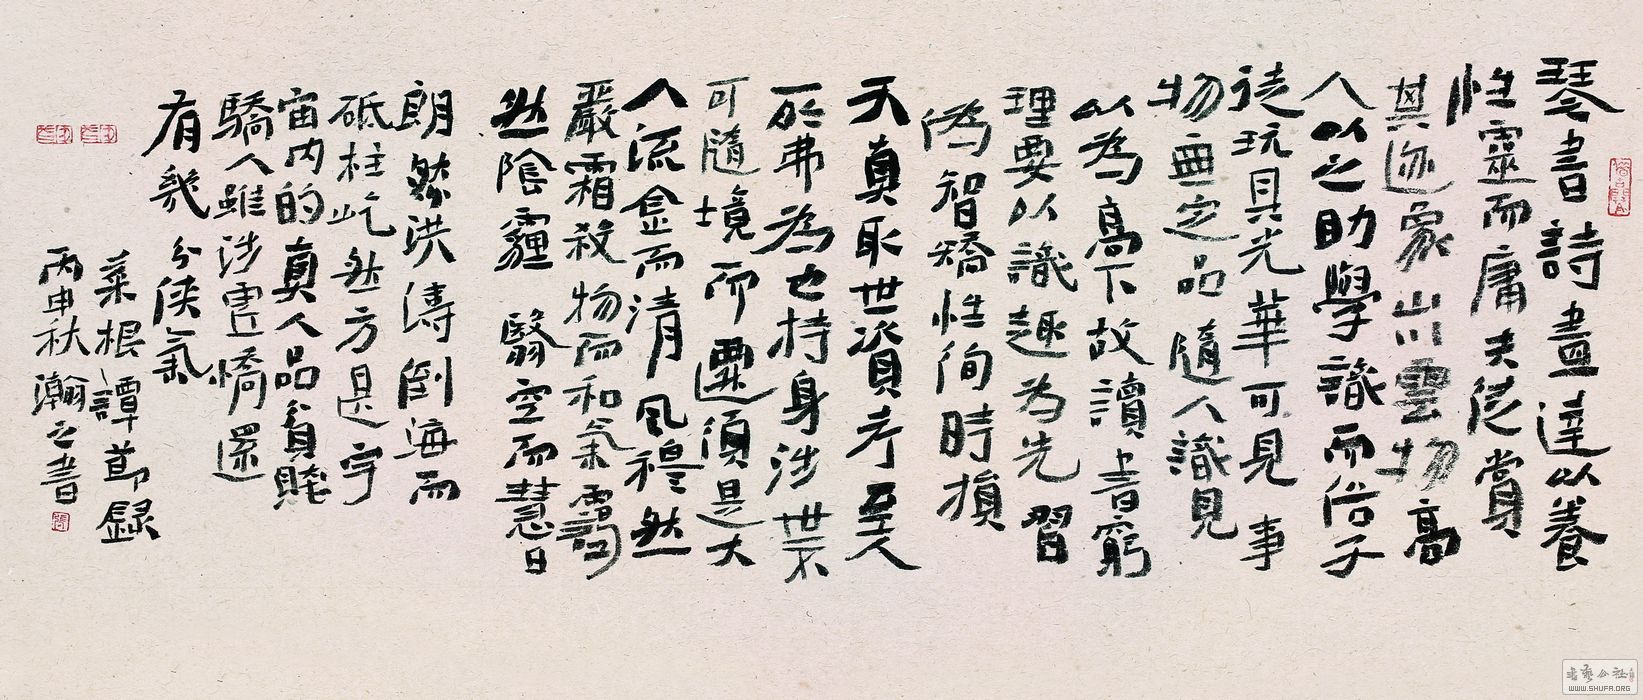 琴書詩畫達以養
性靈而庸夫徒賞
其迹象山川雲物高
人以之助學識而俗子
徒玩其光華可見事
物無定品隨人識見
以為高下故讀書窮
理要以識趣為先 習
偽智矯性徇時損
天真取世資考至人
所弗為也持身涉世不
可隨境而遷須是大
火流金而清風穆然
嚴霜殺物而和氣靄
然陰霾翳空而慧日
朗然洪濤倒海而
砥柱屹然方是宇
宙内的真人品貧賤
驕人雖涉虛憍還
有幾分俠氣
菜根譚節録
丙申秋瀚之書
書藝公社
WWW.SHUFA.ORG